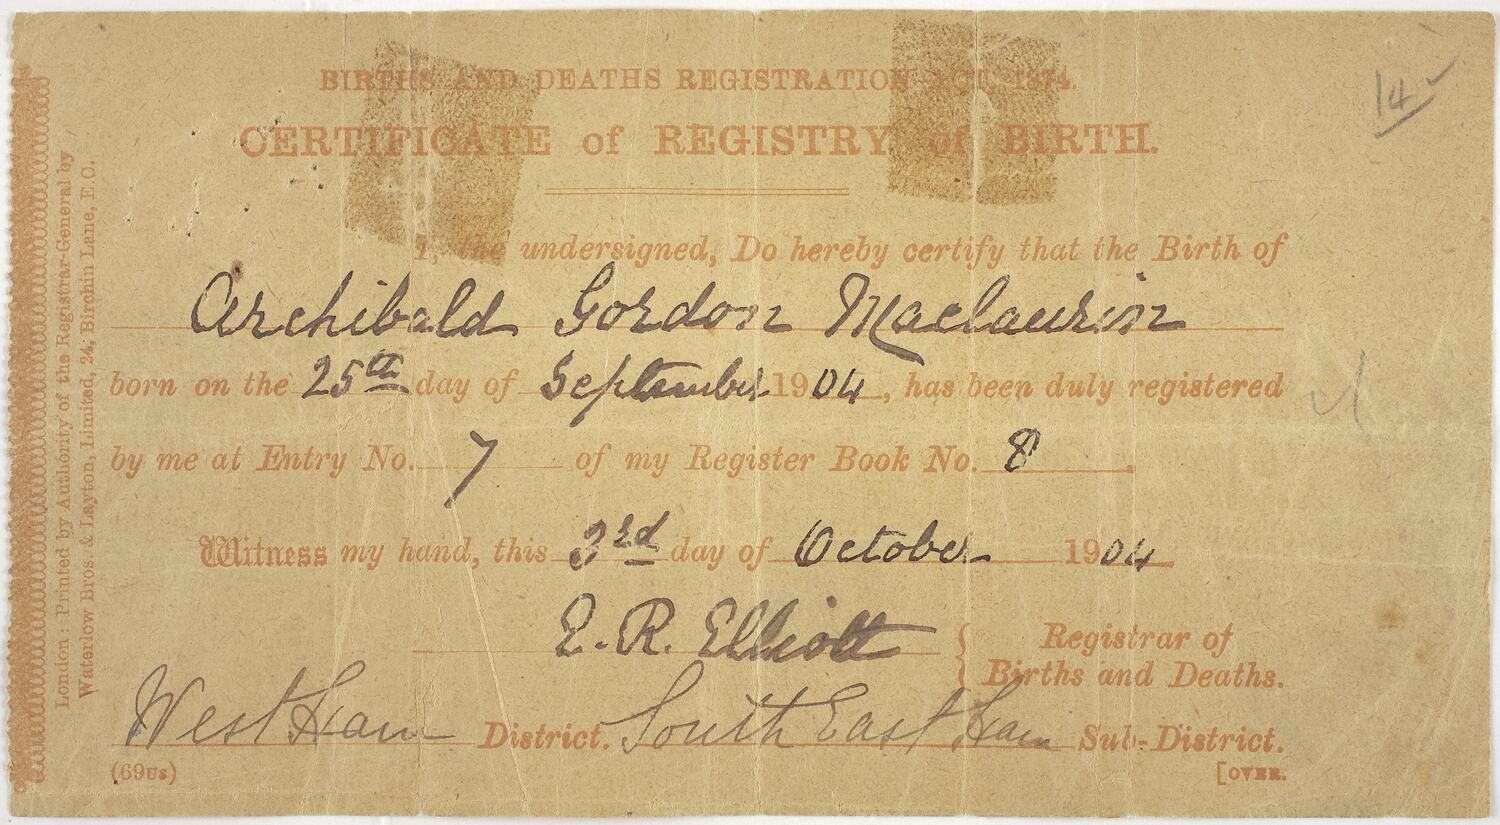 BIRTHS AND DEATHS REGISTRATION ACT, 1874.
14
CERTIFICATE of REGISTRY of BIRTH.
I, the undersigned, Do hereby certify that the Birth of
Archibald Gordon Maclaurin
born on the 25th day of September 1904, has been duly registered
by me at Entry No. 7 of my Register Book No. 8.
Witness my hand, this 3rd day of October 1904
E. R. Elliott Registrar of
Births and Deaths.
West Ham District. South East Ham Sub-District.
(69us)
[OVER.
London: Printed by Authority of the Registrar-General by
Waterlow Bros. & Layton, Limited, 24, Birchin Lane, E.C.